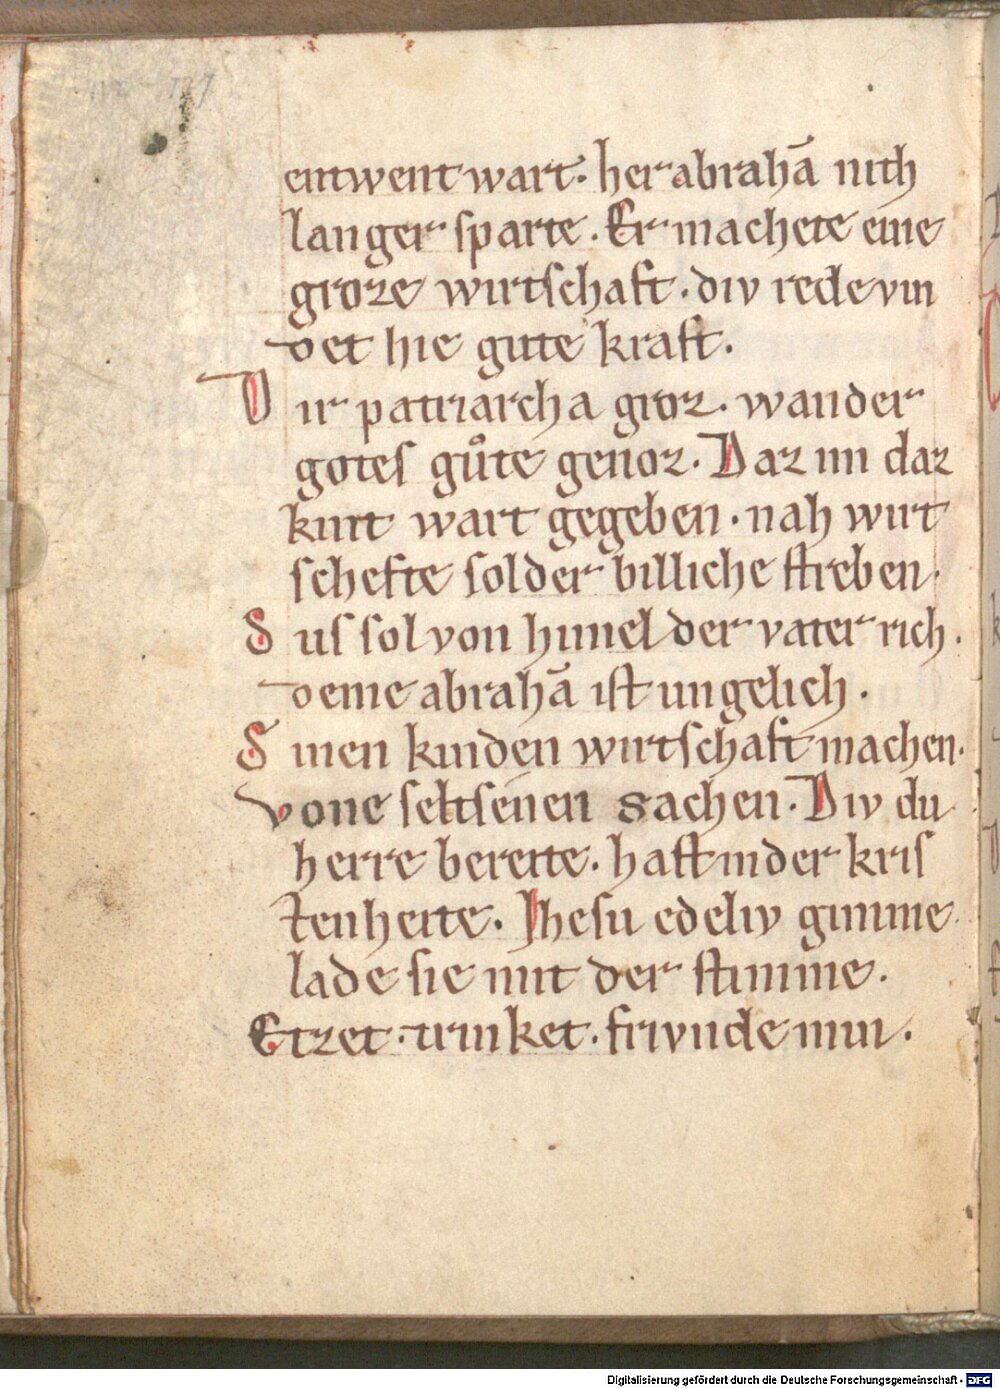 entwent wart. her abrahā nith
langer sparte. Er machete eine
groze wirtschaft. div rede vin
det hie gute kraft.
Dir patriarcha groz. wander
gotes gůte genoz. Daz im daz
kint wart gegeben. nah wirt
schefte solder billiche streben.
Sus sol von himel der vater rich.
deme abrahā ist ungelich.
Sinen kinden wirtschaft machen.
vone seltsenen sachen. Div du
herre bereite. hast in der kris
tenheite. Jhesu edeliv gimme
lade sie mit der stimme.
Etzet. trinket. frivnde min.
Digitalisierung gefördert durch die Deutsche Forschungsgemeinschaft - DFG